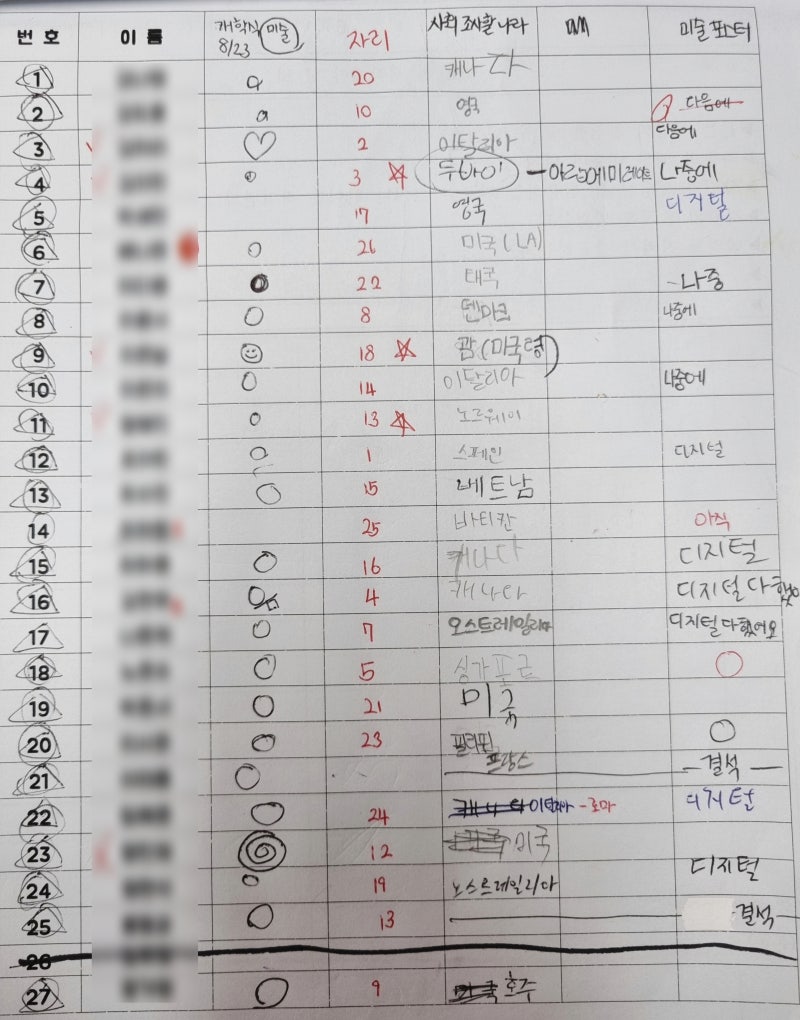 번 호 이 름 개학식 8/23 미술 자리 사회 조사할 나라 미술 포스터
1 20 캐나다
2 10 영국 다음에
3 2 이탈리아 다음에
4 3 두바이 - 아랍에미레이트 나중에
5 17 영국 디지털
6 26 미국(LA)
7 22 태국 - 나중
8 8 덴마크 나중에
9 18 괌(미국령)
10 14 이탈리아 나중에
11 13 노르웨이
12 1 스페인 디지털
13 15 베트남
14 25 바티칸 아직
15 16 캐나다 디지털
16 4 캐나다 디지털 다했
17 7 오스트레일리아 디지털 다했어요
18 5 싱가포르
19 21 미국
20 23 필리핀
21 프랑스 결석
22 24 캐나다 이탈리아 - 로마 디지털
23 12 미국
24 19 디지털
25 13 결석
26
27 9 호주